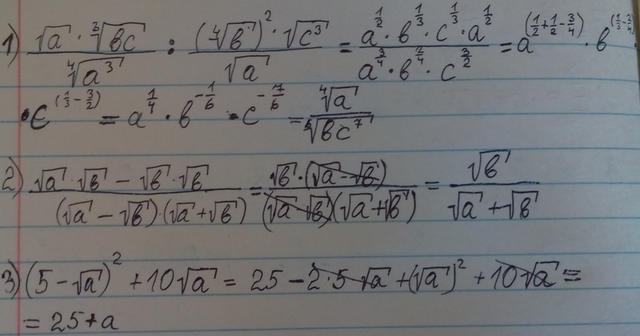 1) (√a · ∛(bc)) / ⁴√(a³) : ((⁴√b)² · √(c³)) / √a = (a^(1/2) · b^(1/3) · c^(1/3) · a^(1/2)) / (a^(3/4) · b^(2/4) · c^(3/2)) = a^(1/2+1/2−3/4) · b^(1/3−3/4)
· c^(1/3−3/2) = a^(1/4) · b^(−1/6) · c^(−7/6) = ⁴√a / ⁶√(bc⁷)
2) (√a · √b − √b · √b) / ((√a − √b)(√a + √b)) = (√b · (√a − √b)) / ((√a − √b)(√a + √b)) = √b / (√a + √b)
3) (5 − √a)² + 10√a = 25 − 2·5·√a + (√a)² + 10√a =
= 25 + a